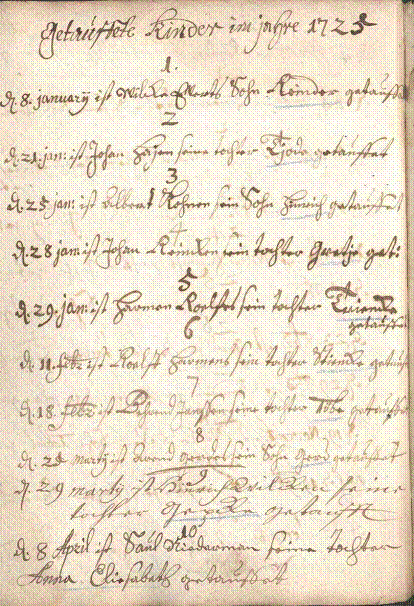 Getauffete Kinder im jahre 1725
1.
d. 8. januarÿ ist Wilcke Everts Sohn Reinder getauffet
2
d. 21. jan: ist Johan Hajen seine tochter Tjode getauffet
3
d. 25 jan: ist Albert Kohnen sein Sohn Hinrich getauffet
4
d. 28 jan: ist Johan Reincken sein tochter Gretje get:
5
d. 29. jan: ist Harmen Roelfes sein tochter Trienke
getauffet
6
d. 11. febr ist Roelff Harmens sein tochter Stiencke getauffet
7
d. 18 febr ist Janssen seine tochter getauffet
8
d. 25 martÿ ist Arend sein Sohn Gerd getauffet
9
d. 29 marty ist Hinrich Wilcken seine
tochter Gepcke getaufft
10
d. 8 April ist Saul Niederman seine tochter
Anna Eliesabath getauffet